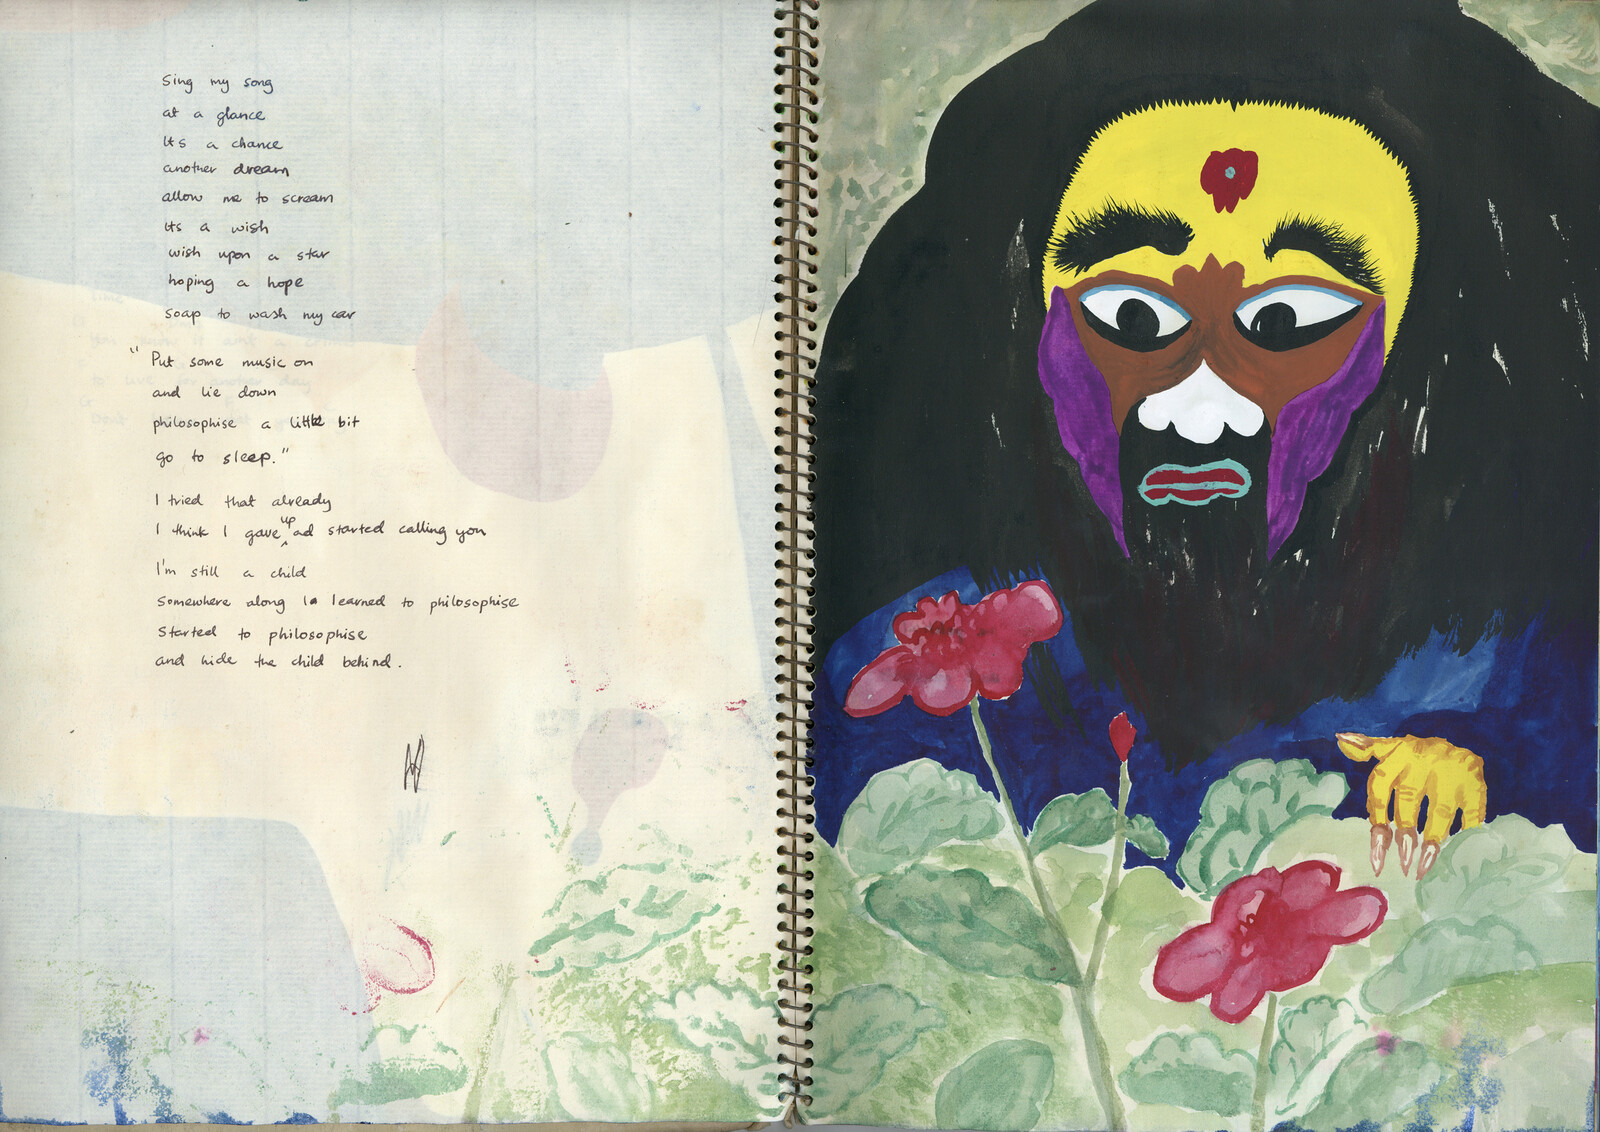 Sing my song
at a glance
Its a chance
another dream
allow me to scream
Its a wish
wish upon a star
hoping a hope
soap to wash my car
"Put some music on
and lie down
philosophise a little bit
go to sleep."
I tried that already
I think I gave up ad started calling you
I'm still a child
Somewhere along I learned to philosophise
Started to philosophise
and hide the child behind.